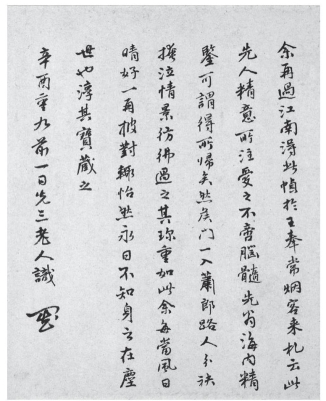 余再過江南得此幀於王奉常烟客来札云此
先人精意所注愛之不啻腦髓先翁海內精
鑒可謂得所歸矣然侯門一入蕭郎路人分袂
泣情景彷彿遇之其珍重如此余每當風日
晴好一再披對輒怡然永日不知身之在塵
世也淳其寶藏之
辛酉重九前一日先三老人識